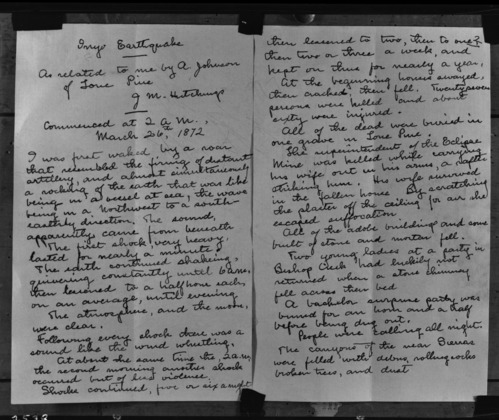 Inyo Earthquake
As related to me by A. Johnson
of Lone Pine
J M. Hutchings
Commenced at 2 A.M.,
March 26th, 1872
I was first waked by a roar
that resembled the firing of distant
artillery, and almost simultaneously
a rocking of the earth that was like
being in a vessel at sea, the wave
being in a Northwest to a south-
easterly direction. The sound,
apparently came from beneath
The first shock, very heavy,
lasted for nearly a minute;
The earth continued shaking,
quivering constantly until 6 a.m.,
then lessened to a half hour each,
on an average, until evening
The atmosphere, and the moon,
were clear.
Following every shock there was a
sound like the wind whistling.
At about the same time, 2 a.m,
the second morning another shock
occurred but of less violence,
Shocks continued, five or six a night
then lessened to two, then to one,
then two or three a week, and
kept on thus for nearly a year,
At the beginning houses swayed,
then cracked, then fell. Twenty seven
persons were killed and about
sixty were injured.
All of the dead were buried in
one grave in Lone Pine.
The superintendent of the Eclipse
Mine was killed while carrying
his wife out in his arms, a rafter
striking him. His wife survived
in the fallen house By scratching
the plaster off the ceiling for air she
escaped suffocation.
All of the adobe buildings and some
built of stone and mortar fell.
Two young ladies at a party in
Bishop Creek had luckily not
returned when a stone chimney
fell across their bed
A bachelor surprise party was
buried for an hour and a half
before being dug out.
People were calling all night.
The canyons of the near Sierras
were filled with debris, rolling rocks
broken trees, and dust